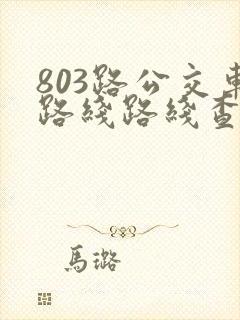 803路公交車
路綫路綫查
馬璐